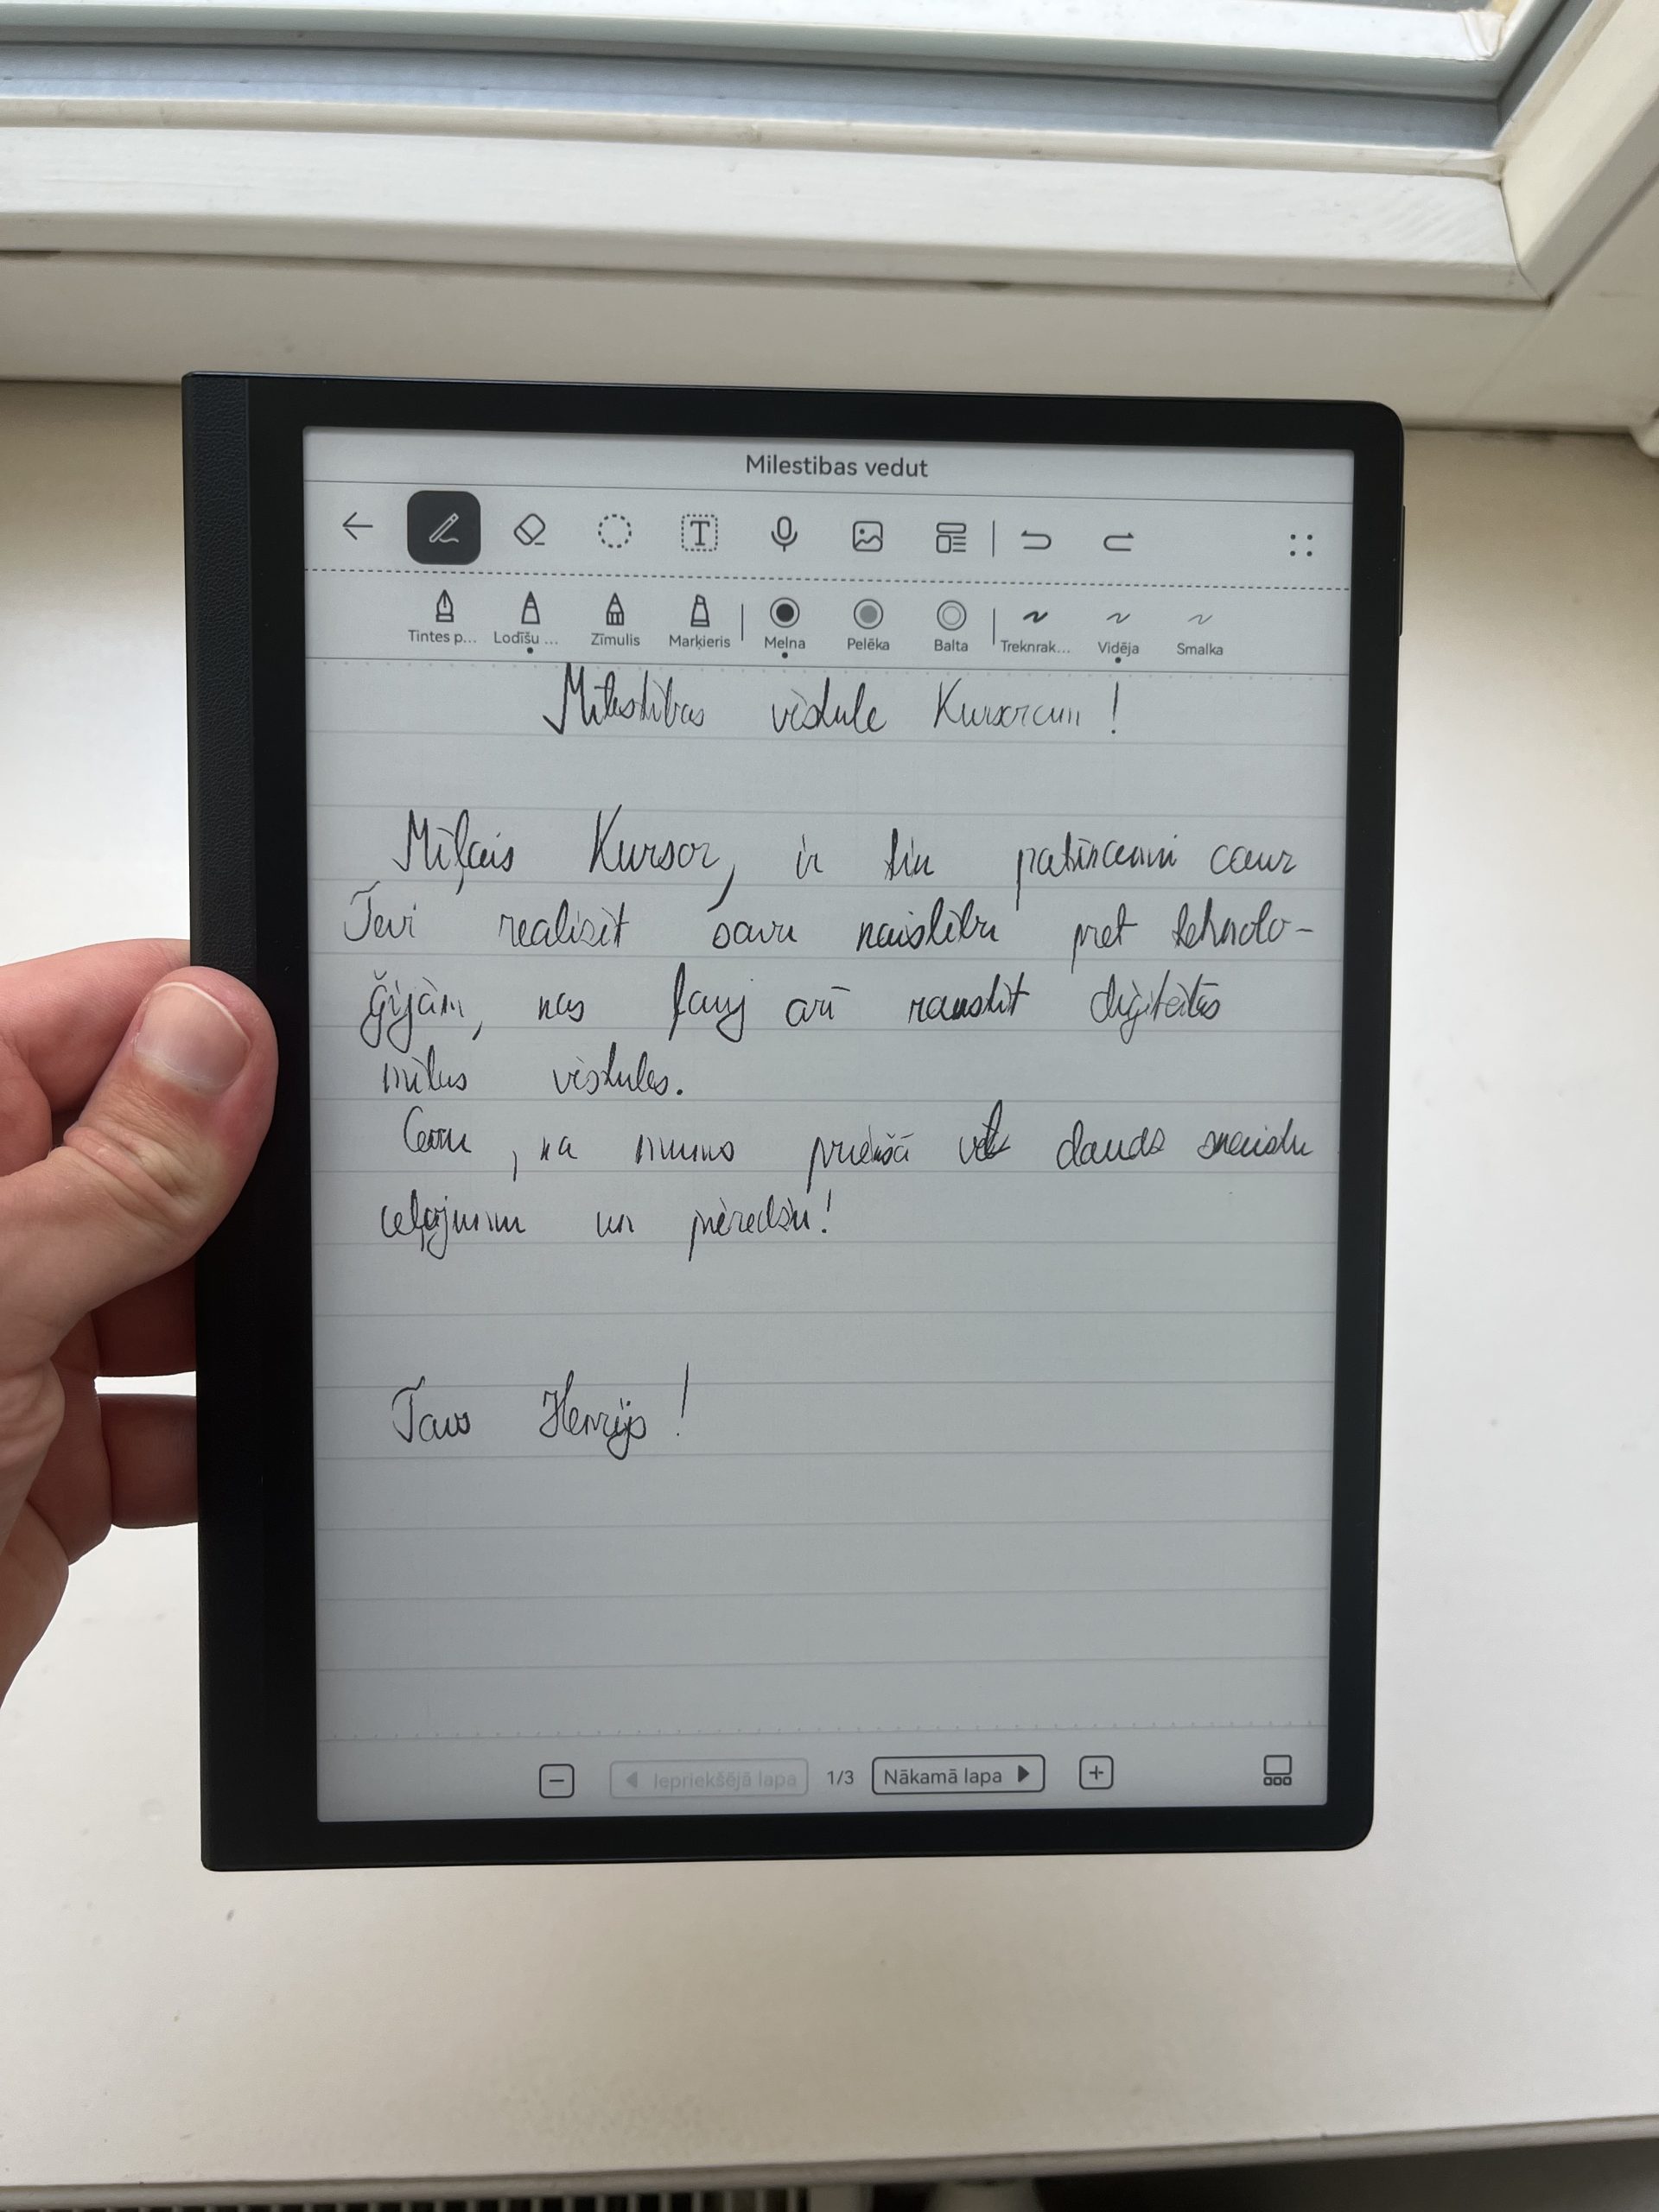 Milestibas vedut
Tintes p... Lodīšu ... Zīmulis Marķieris Melna Pelēka Balta Treknrak... Vidēja Smalka
Mīlestības vēstule Kursoram!
Mīļais Kursor, ir tik patīkami caur
Tevi realizēt savu kaislību pret tehnolo-
ģijām, kas ļauj arī rakstīt digitālās
mīlas vēstules.
Ceru, ka mums priekšā vēl daudz skaistu
ceļojumu un pieredžu!
Tavs Henrijs!
Iepriekšējā lapa 1/3 Nākamā lapa